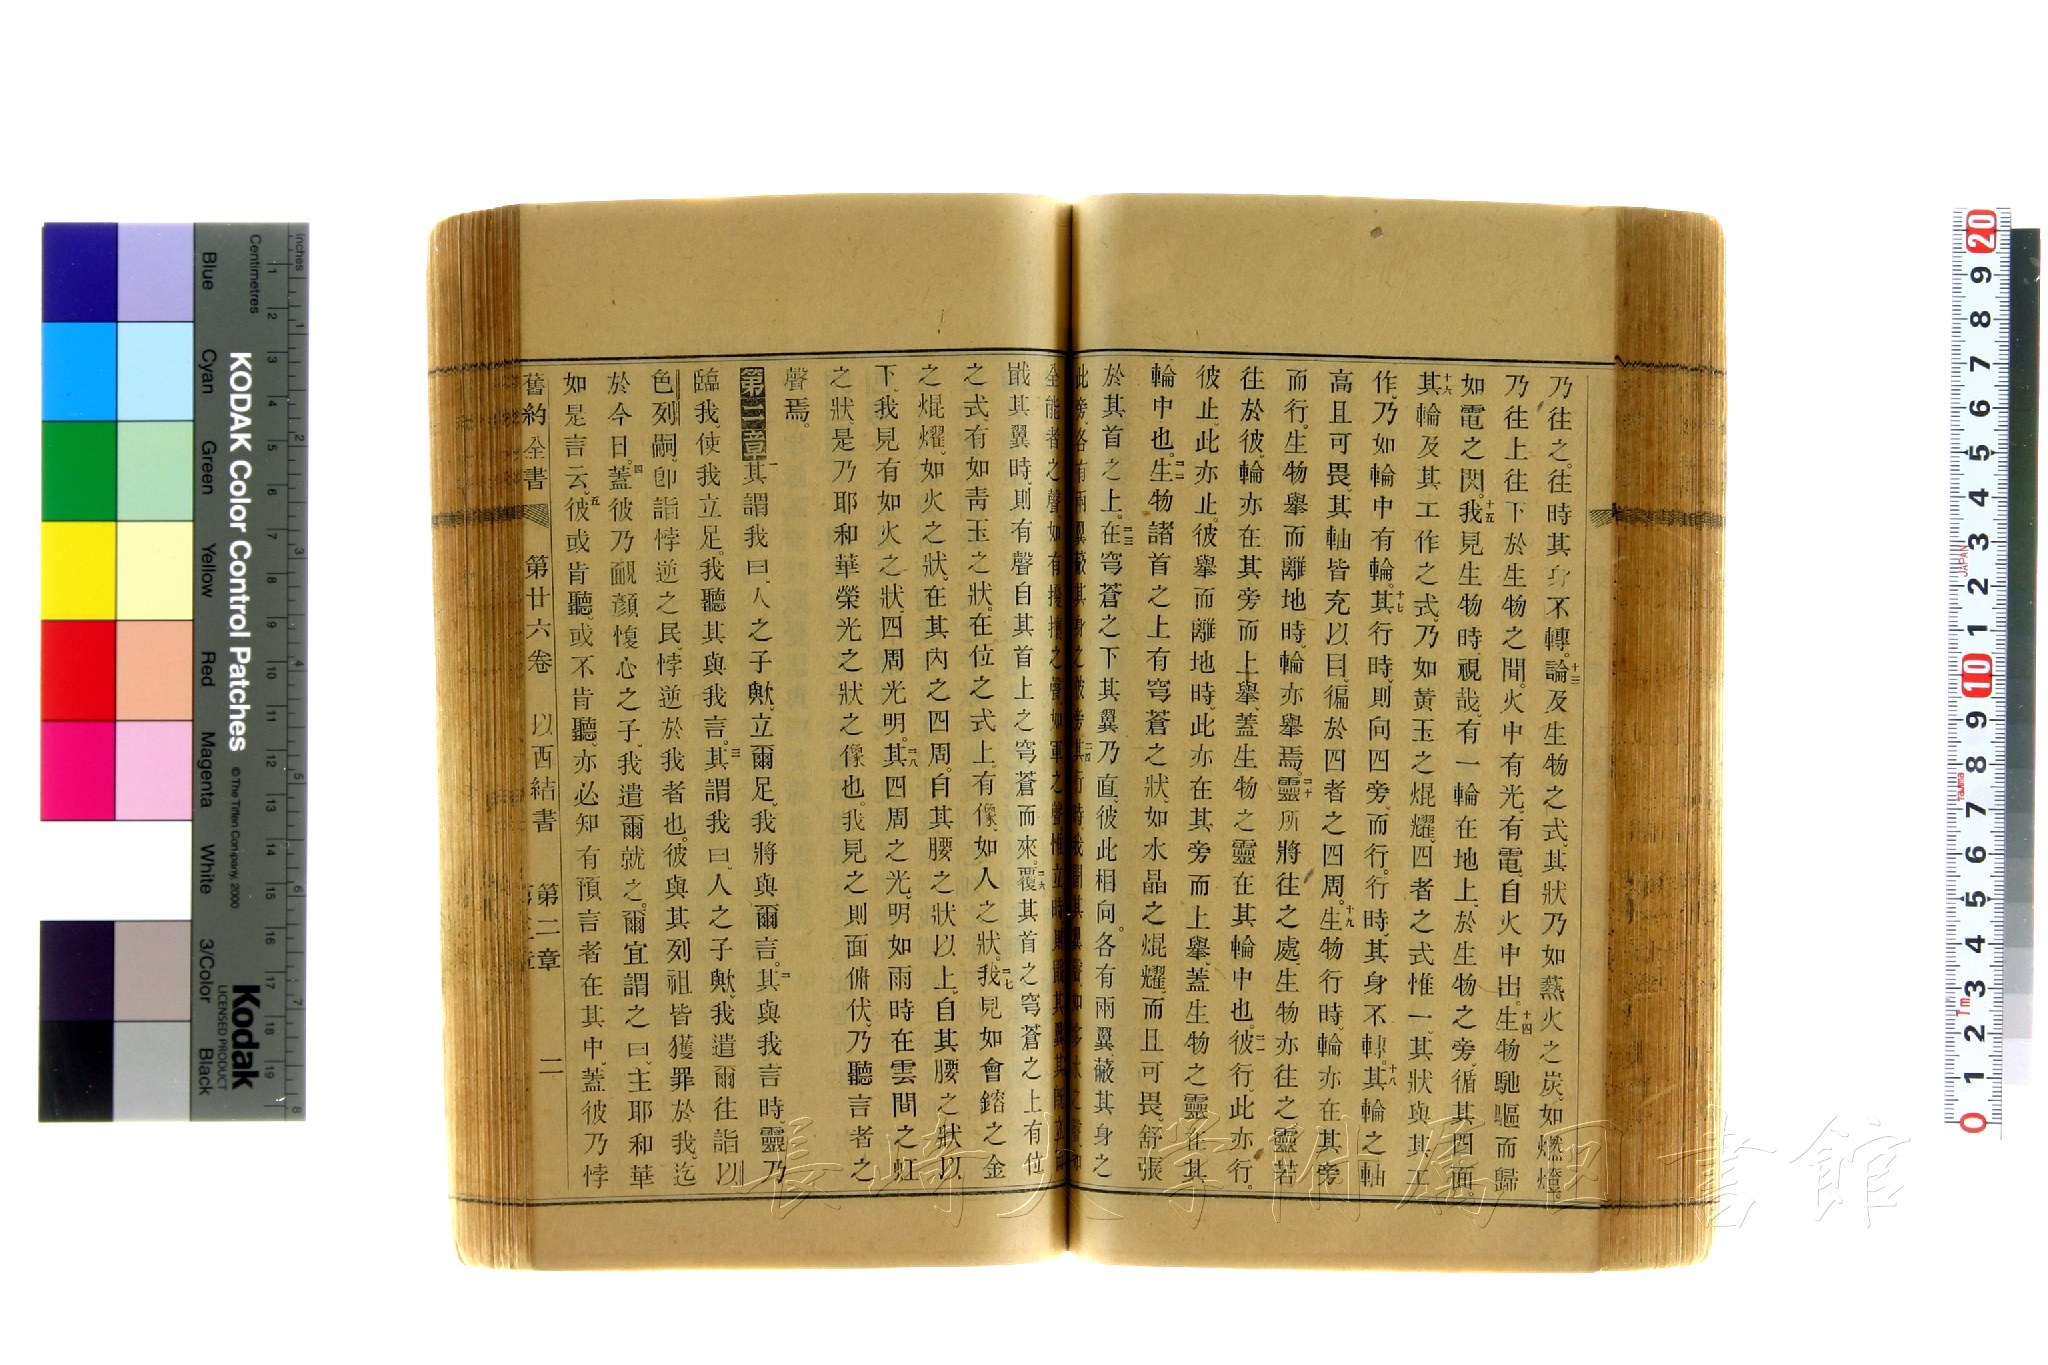 乃往之、往時其身不轉。十三論及生物之式、其狀乃如爇火之炭、如燃燈。
乃往上往下於生物之間。火中有光、有電、自火中出。十四生物馳驅而歸
如電之閃。十五我見生物時、視哉、有一輪在地上、於生物之旁、循其四面。
十六其輪及其工作之式、乃如黃玉之焜耀。四者之式惟一、其狀與其工
作、乃如輪中有輪。十七其行時、則向四旁而行。行時、其身不轉。十八其輪之軸
高且可畏、其軸皆充以目、徧於四者之四周。十九生物行時、輪亦在其旁
而行。生物舉而離地時、輪亦舉焉。二十靈所將往之處、生物亦往之、靈若
往於彼、輪亦在其旁而上舉、蓋生物之靈在其輪中也。二一彼行、此亦行。
彼止、此亦止。彼舉而離地時、此亦在其旁而上舉、蓋生物之靈在其
輪中也。二二生物諸首之上有穹蒼之狀、如水晶之焜耀、而且可畏、舒張
於其首之上。二三在穹蒼之下其翼乃直、彼此相向。各有兩翼蔽其身之
此旁、各有兩翼蔽其身之彼旁。二四其行時我聞其翼聲如多水之聲、如
全能者之聲、如有擾攘之聲、如軍之聲、惟立時則戢其翼。其旣立
戢其翼時、則有聲自其首上之穹蒼而來。二六覆其首之穹蒼之上有位
之式、有如靑玉之狀。在位之式上、有像、如人之狀。二七我見如會鎔之金
之焜燿、如火之狀、在其內之四周。自其腰之狀以上、自其腰之狀以
下、我見有如火之狀、四周光明。二八其四周之光明、如雨時在雲間之虹
之狀、是乃耶和華榮光之狀之像也。我見之則面俯伏、乃聽言者之
聲焉。
第二章一其謂我曰、人之子歟、立爾足、我將與爾言。二其與我言時、靈乃
臨我、使我立足。我聽其與我言。三其謂我曰、人之子歟、我遣爾往詣以
色列嗣、卽詣悖逆之民、悖逆於我者也。彼與其列祖皆獲罪於我、迄
於今日。四蓋彼乃靦顏愎心之子、我遣爾就之。爾宜謂之曰、主耶和華
如是言云。五彼或肯聽。或不肯聽、亦必知有預言者在其中、蓋彼乃悖
舊約全書 第廿六卷 以西結書 第二章 二
KODAK Color Control Patches
© The Tiffen Company, 2000
Kodak
LICENSED PRODUCT
Inches
Centimetres
Blue
Cyan
Green
Yellow
Red
Magenta
White
3/Color
Black
長崎大学附属図書館